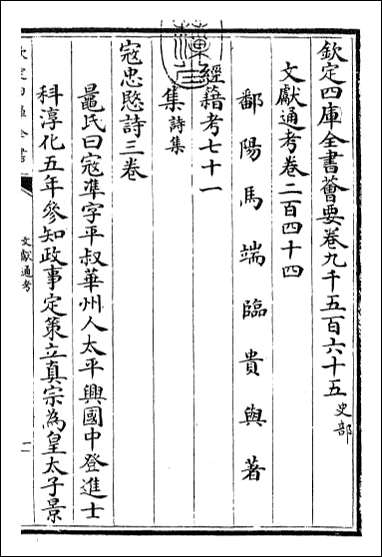 欽定四庫全書薈要卷九千五百六十五 史部
文獻通考卷二百四十四
鄱陽馬端臨貴與著
經籍考七十一
集 詩集
寇忠愍詩三卷
鼂氏曰寇準字平叔華州人太平興國中登進士
科淳化五年參知政事定策立真宗為皇太子景
文獻通考